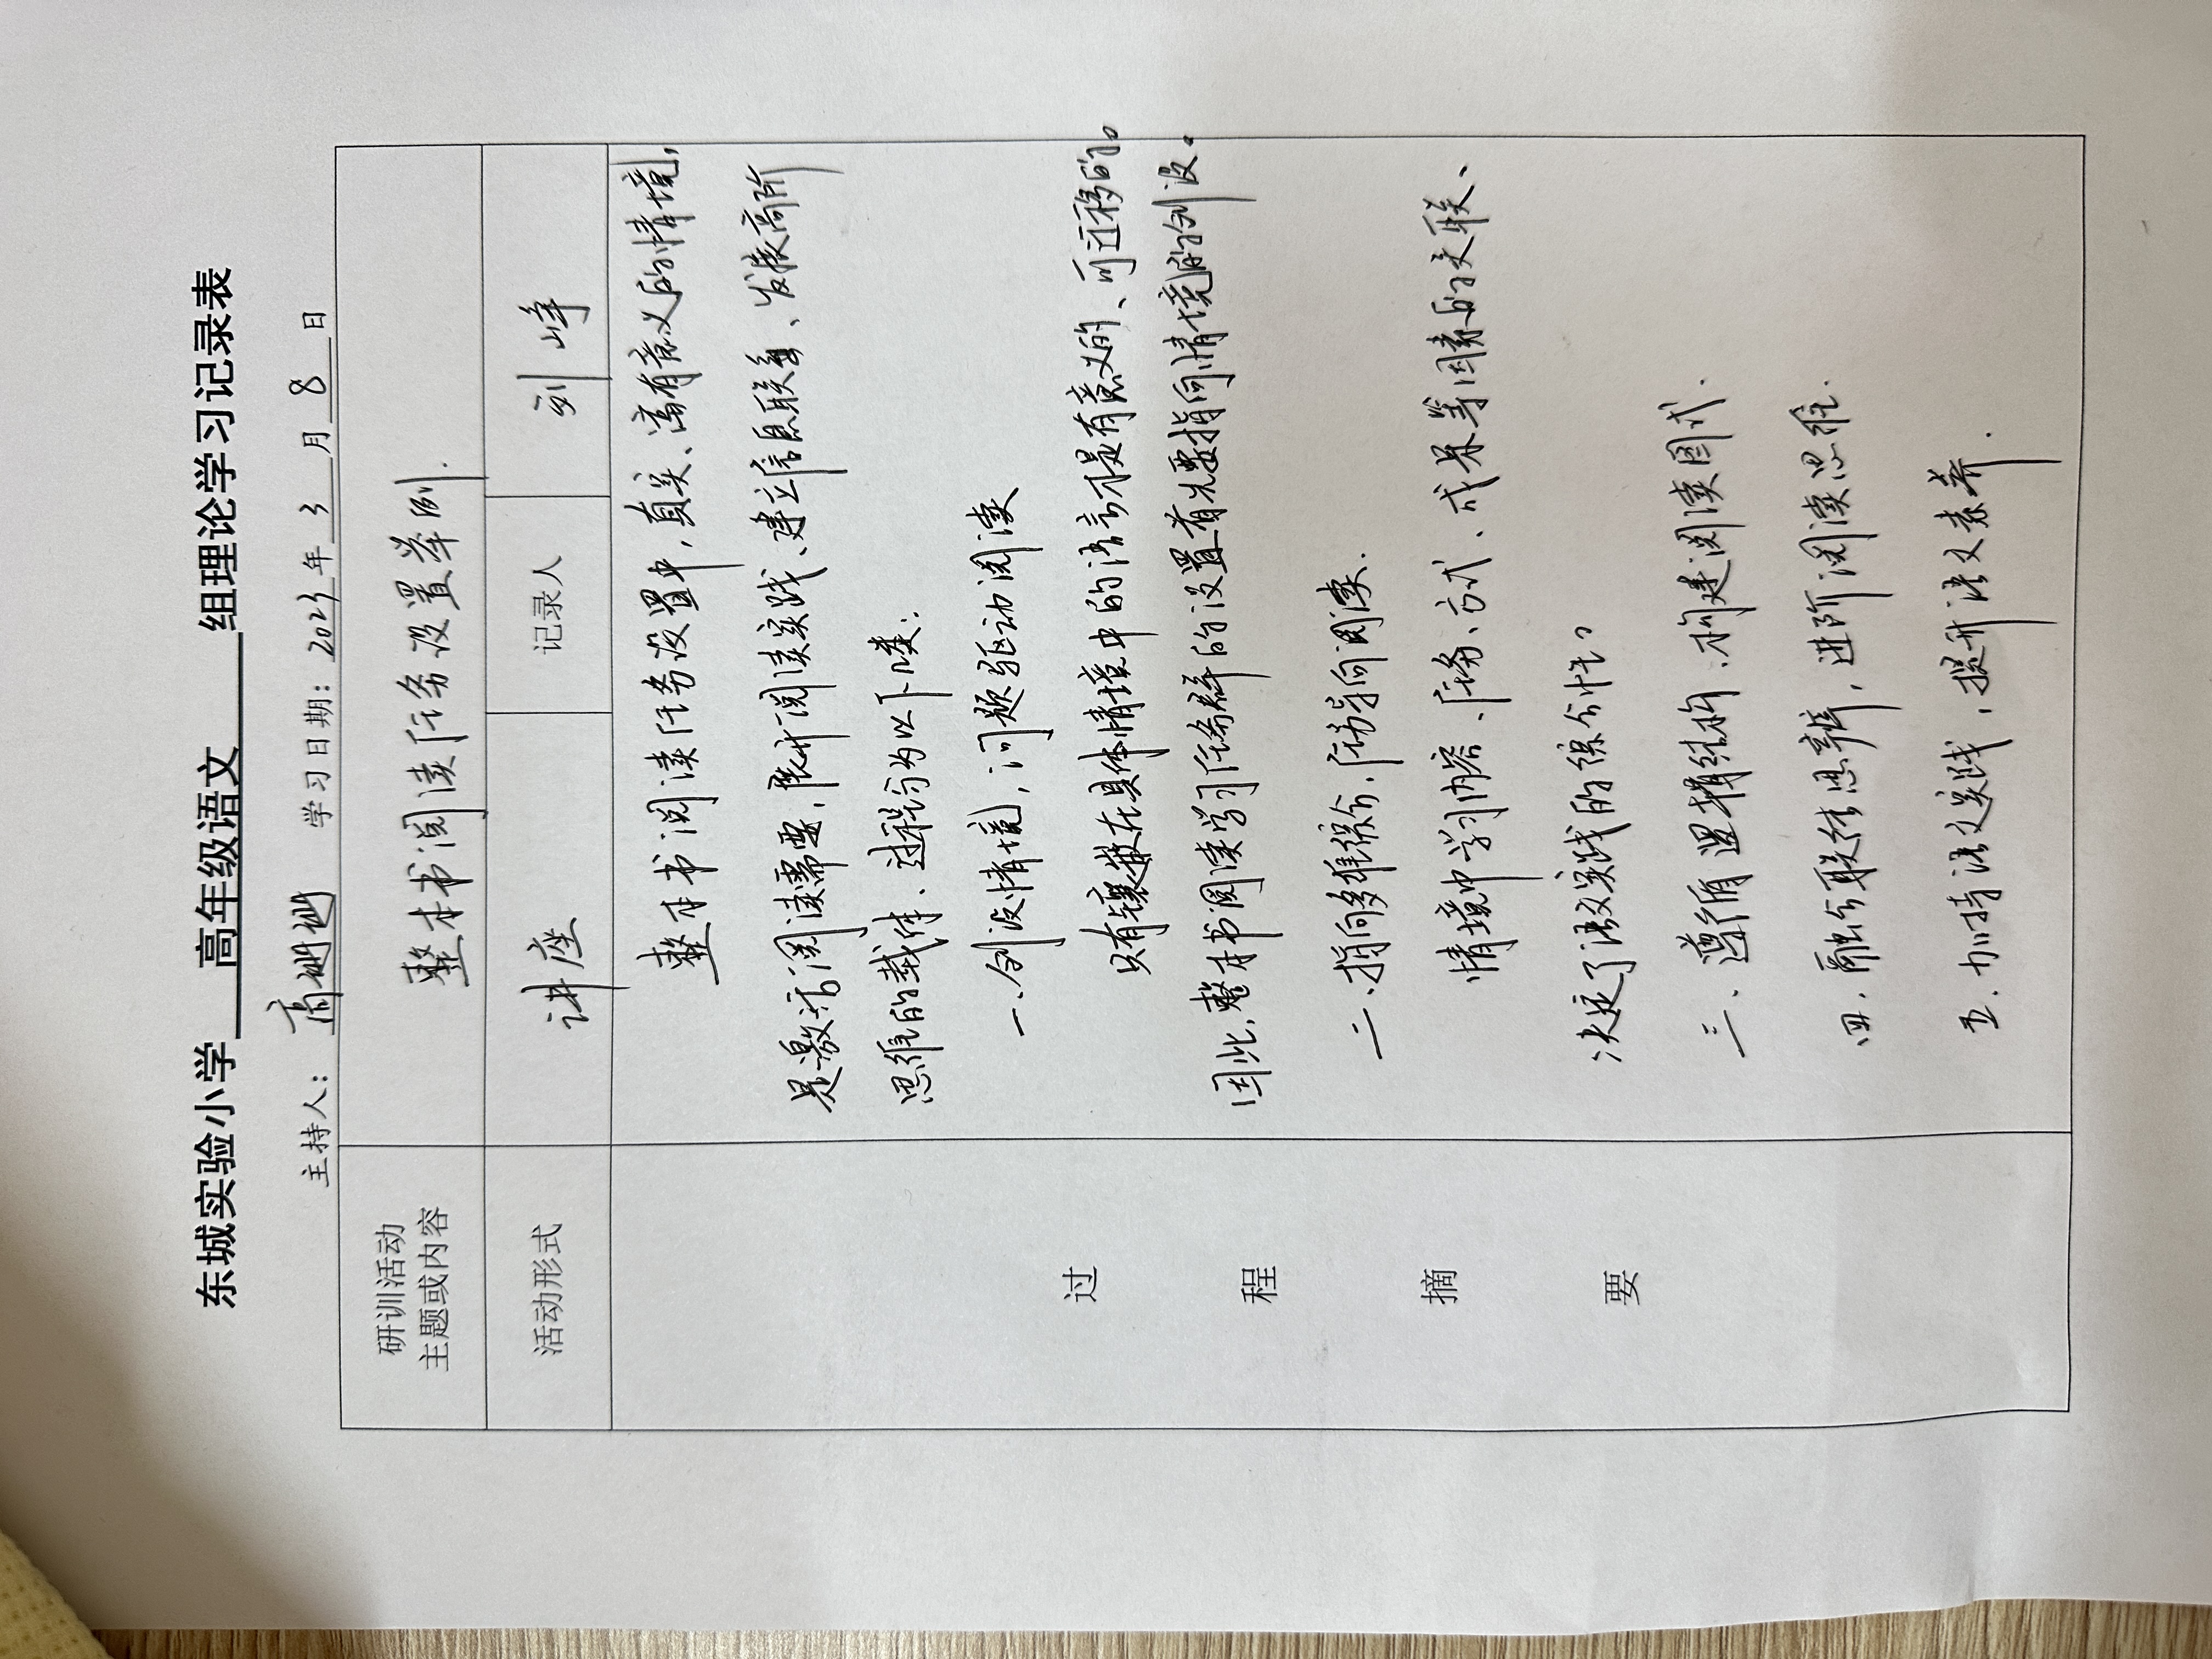 东城实验小学 高年级语文 组理论学习记录表
主持人： 高姗姗 学习日期： 2023 年 3 月 8 日
研训活动
主题或内容
整本书阅读任务设置举例.
活动形式 讲座 记录人 刘峥
过
程
摘
要
整本书阅读任务设置中，真实、富有意义的情境，
是激活阅读需要，展开阅读实践、建立信息联系、发展高阶
思维的载体、过程分为以下几类：
一、创设情境，问题驱动阅读
只有镶嵌在具体情境中的语言才是有意义的、可迁移的。
因此，整本书阅读学习任务群的设置首先要指向情境的创设。
二、指向多维综合，任务导向阅读.
情境中学习内容、任务、方式、成果等因素的关联、
决定了语文实践的综合性。
三、遵循逻辑结构、构建阅读图式.
四. 融合联结思辨，进阶阅读思维.
五. 加持语文实践，提升语文素养.